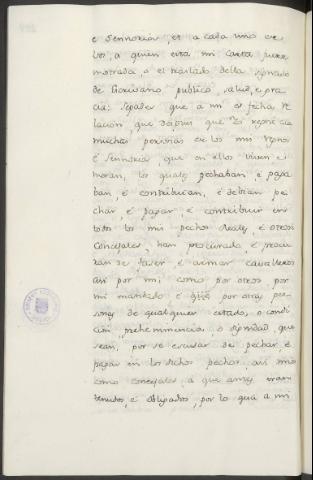 e Sennorios, et a cada uno de
vos, a quien esta mi carta fuere
mostrada, o el traslado della signado
de Escrivano publico, salud, e gra-
cia: Sepades que a mi es fecha re-
lacion, que despues que Yo regné cia
muchas personas de los mis regnos
e Sennorios que en ellos viven e
moran, los quales pechaban, e paga-
ban, e contribuian, e debian pe-
char, e pagar e contribuir en
todos los mis pechos Reales, e otros
Concejales, han procurado e procu-
ran de facer e armar cavalleros
asi por mi, como por otros, por
mi mandado e por otras per-
sonas de qualquier estado, o condi-
cion, prehemminencia, o dignidad, que
sean, por se escusar de pechar, e
pagar en los dichos pechos, asi mios
como concejales, a que antes eran
tenudos, e obligados, por lo qual a mi